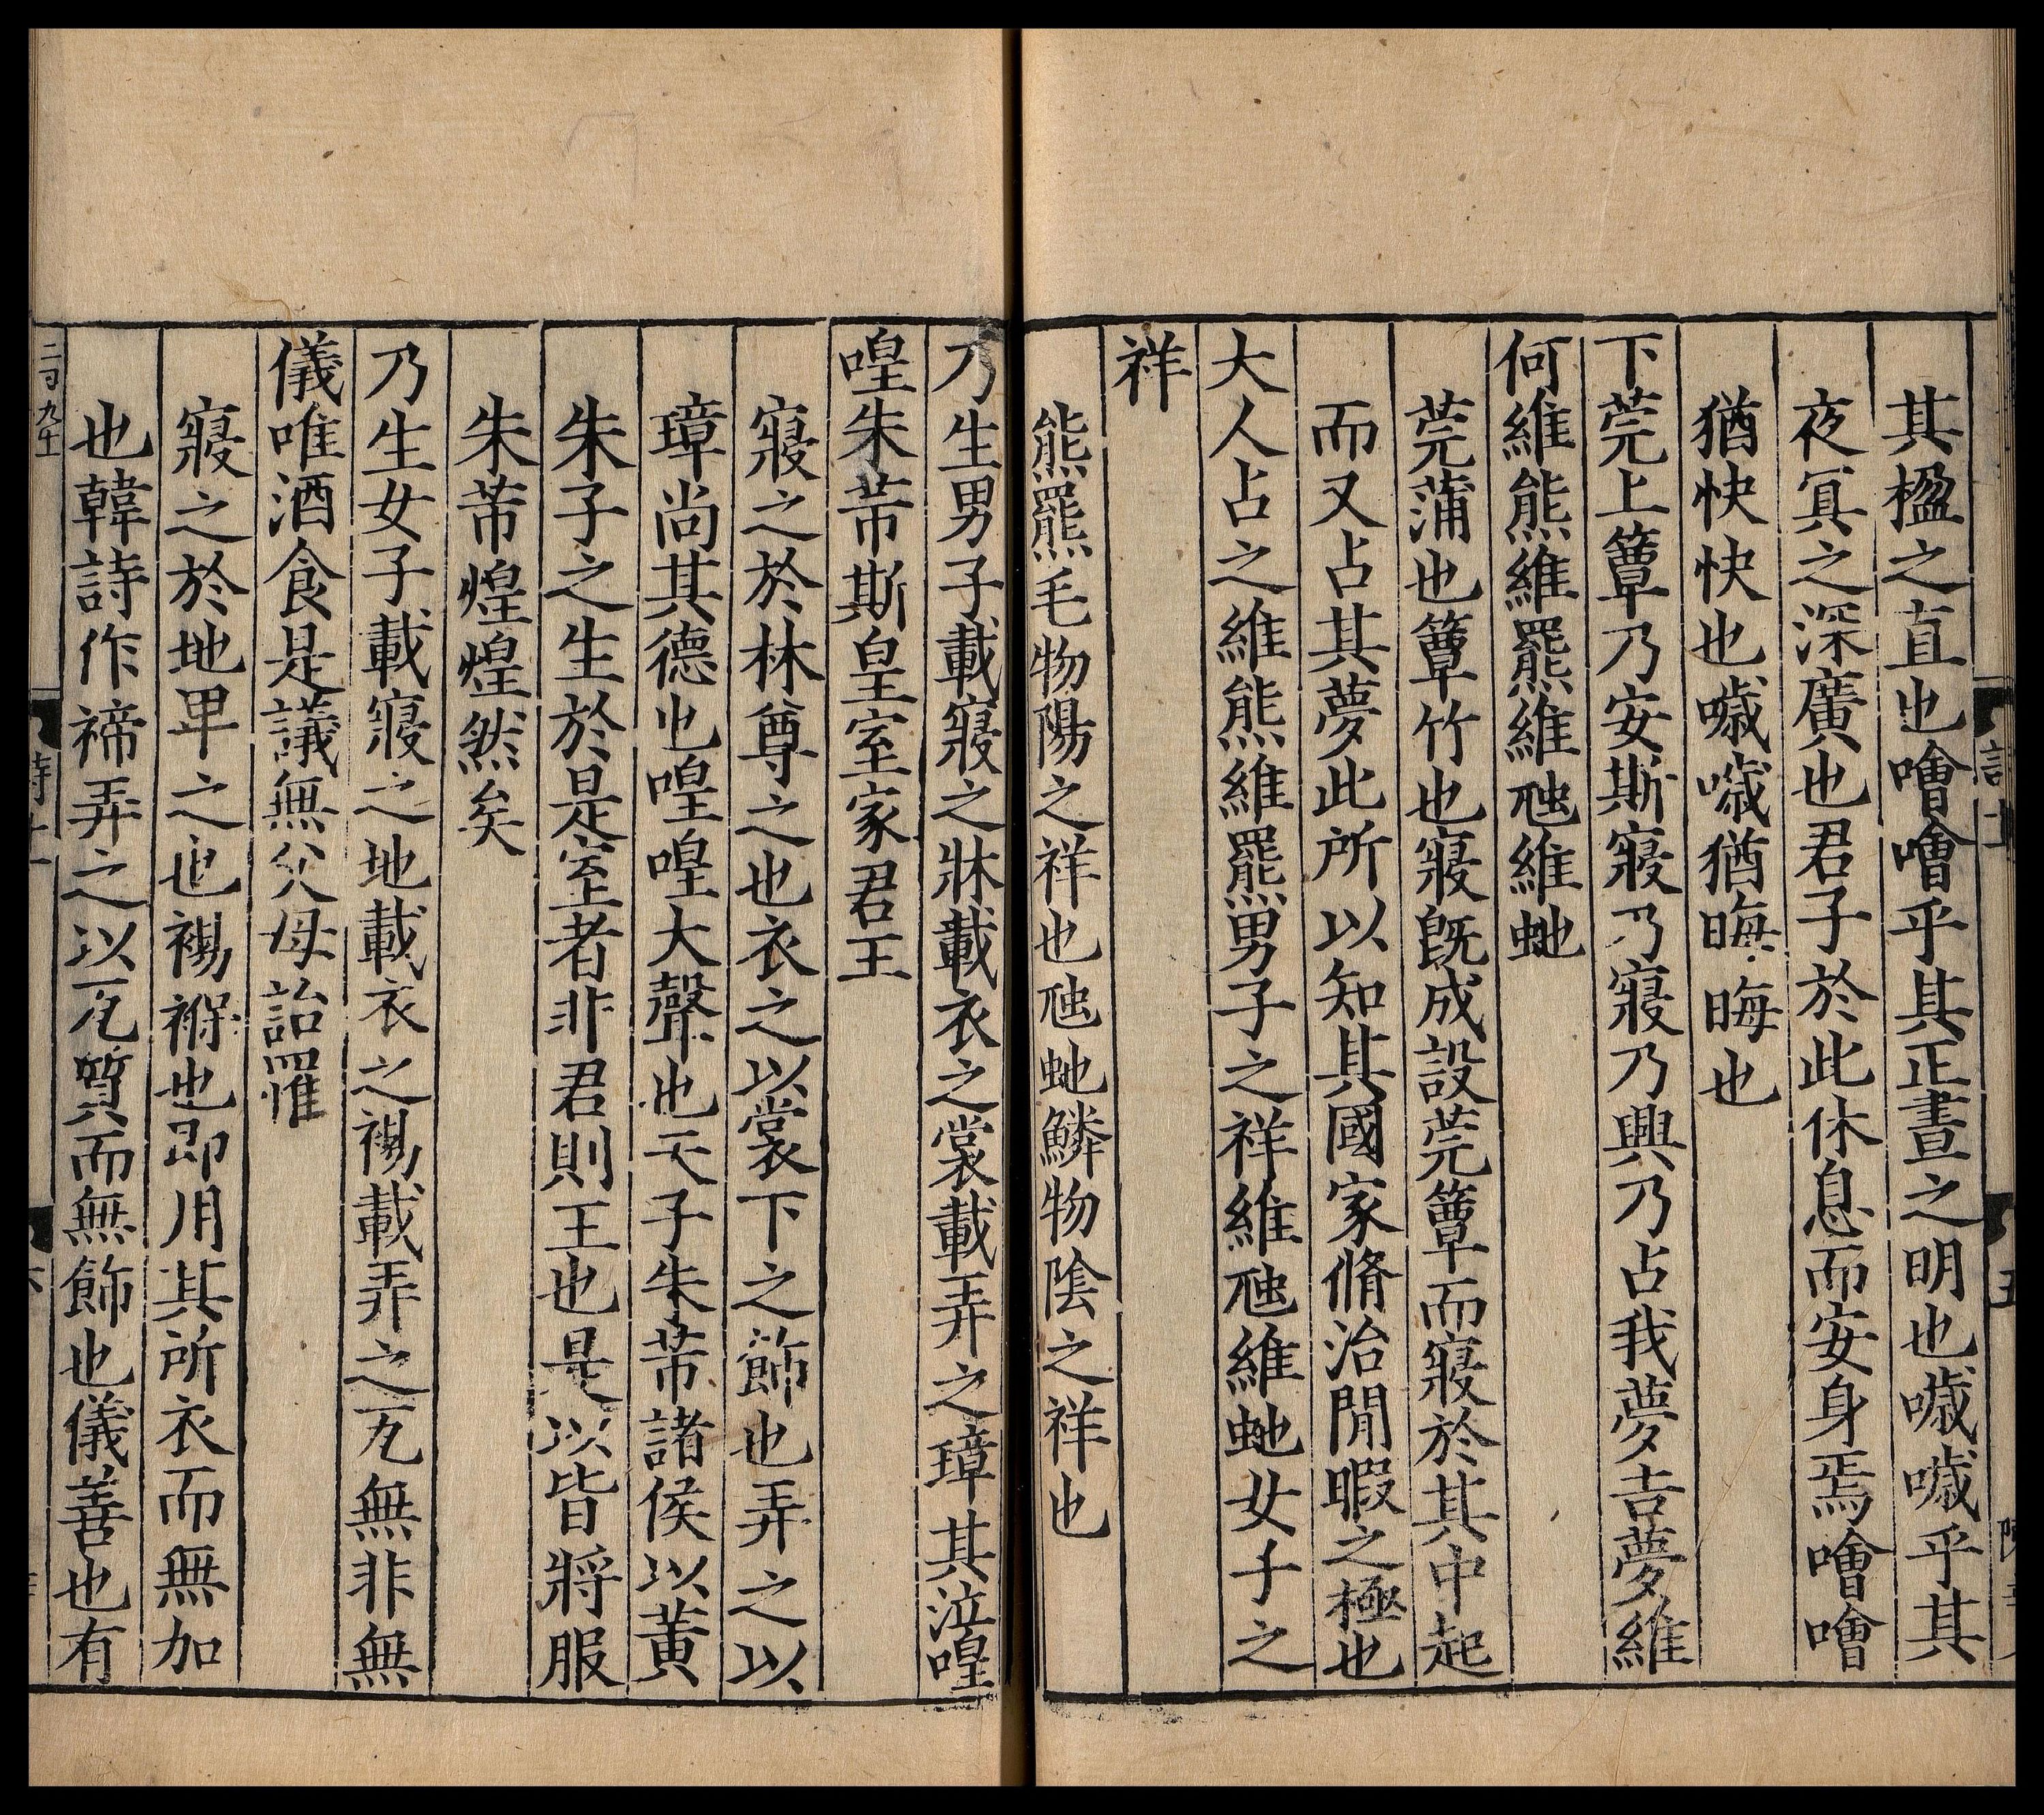 其楹之直也噲噲乎其正晝之明也噦噦乎其
夜冥之深廣也君子於此休息而安身焉噲噲
猶快快也噦噦猶晦晦也
下莞上簟乃安斯寢乃寢乃興乃占我夢吉夢維
何維熊維羆維虺維虵
莞蒲也簟竹也寢旣成設莞簟而寢於其中起
而又占其夢此所以知其國家脩治閒暇之極也
大人占之維熊維羆男子之祥維虺維虵女子之
祥
熊羆毛物陽之祥也虺虵鱗物隂之祥也
乃生男子載寢之牀載衣之裳載弄之璋其泣喤
喤朱芾斯皇室家君王
寢之於牀尊之也衣之以裳下之飾也弄之以
璋尚其德也喤喤大聲也天子朱芾諸侯以黃
朱子之生於是室者非君則王也是以皆將服
朱芾煌煌然矣
乃生女子載寢之地載衣之裼載弄之瓦無非無
儀唯酒食是議無父母詒罹
寢之於地卑之也裼褓也即用其所衣而無加
也韓詩作褅弄之以瓦質而無飾也儀善也有